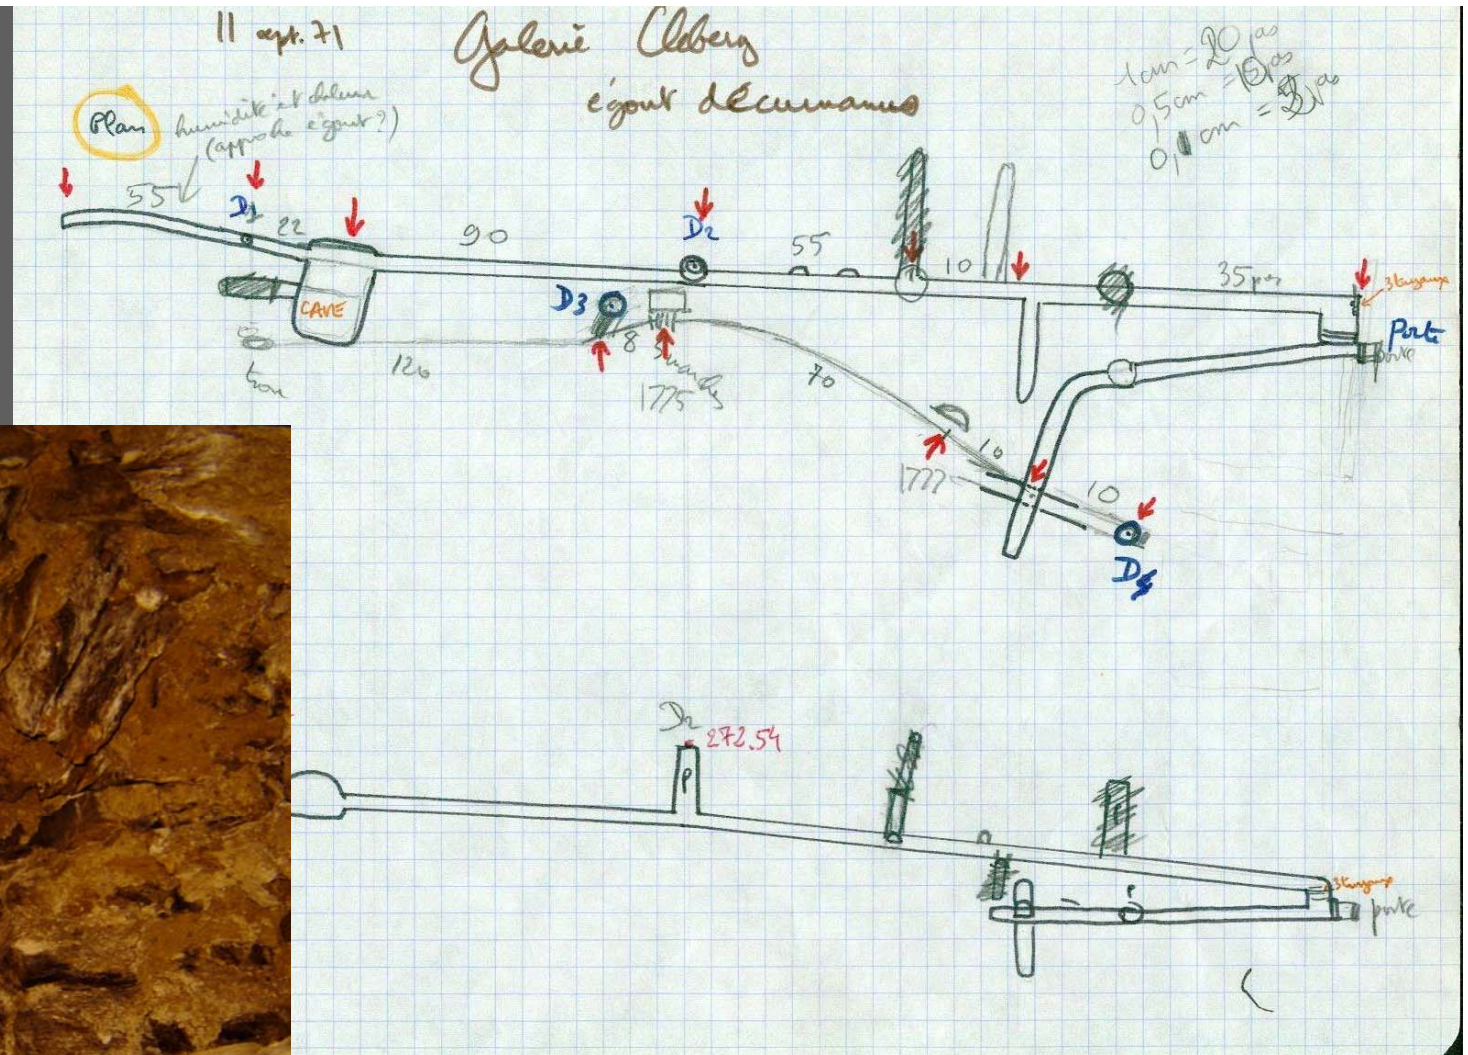 11 sept. 71
Galerie Cleberg
égout décumanus
1cm = 20 pas
0,5cm = 10 pas
0,1cm = 2 pas
Plan
humidité et chaleur
(approche égout ?)
55
D1
22
90
D2
55
10
35 pas
3 tuyaux
Porte
porte
CAVE
D3
8
5 marches
1775
120
trou
70
1777
10
10
D4
D2
272.54
P
3 tuyaux
porte